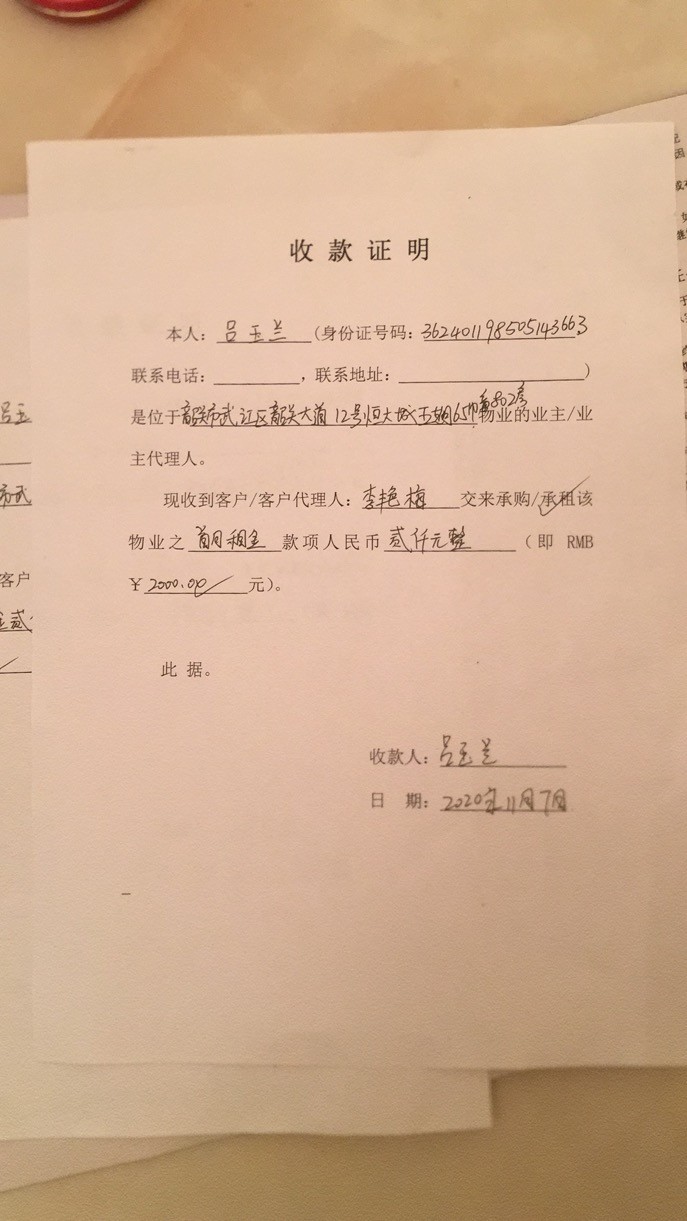 收款证明
本人：吕玉兰（身份证号码：362401198505143663，
联系电话：，联系地址：）
是位于韶关市武江区韶关大道12号恒大城五期65幢802房物业的业主/业
主代理人。
现收到客户/客户代理人：李艳梅 交来承购/承租该
物业之 首月租金 款项人民币 贰仟元整 （即 RMB
￥2000.00 元）。
此 据。
收款人：吕玉兰
日 期：2020年11月7日